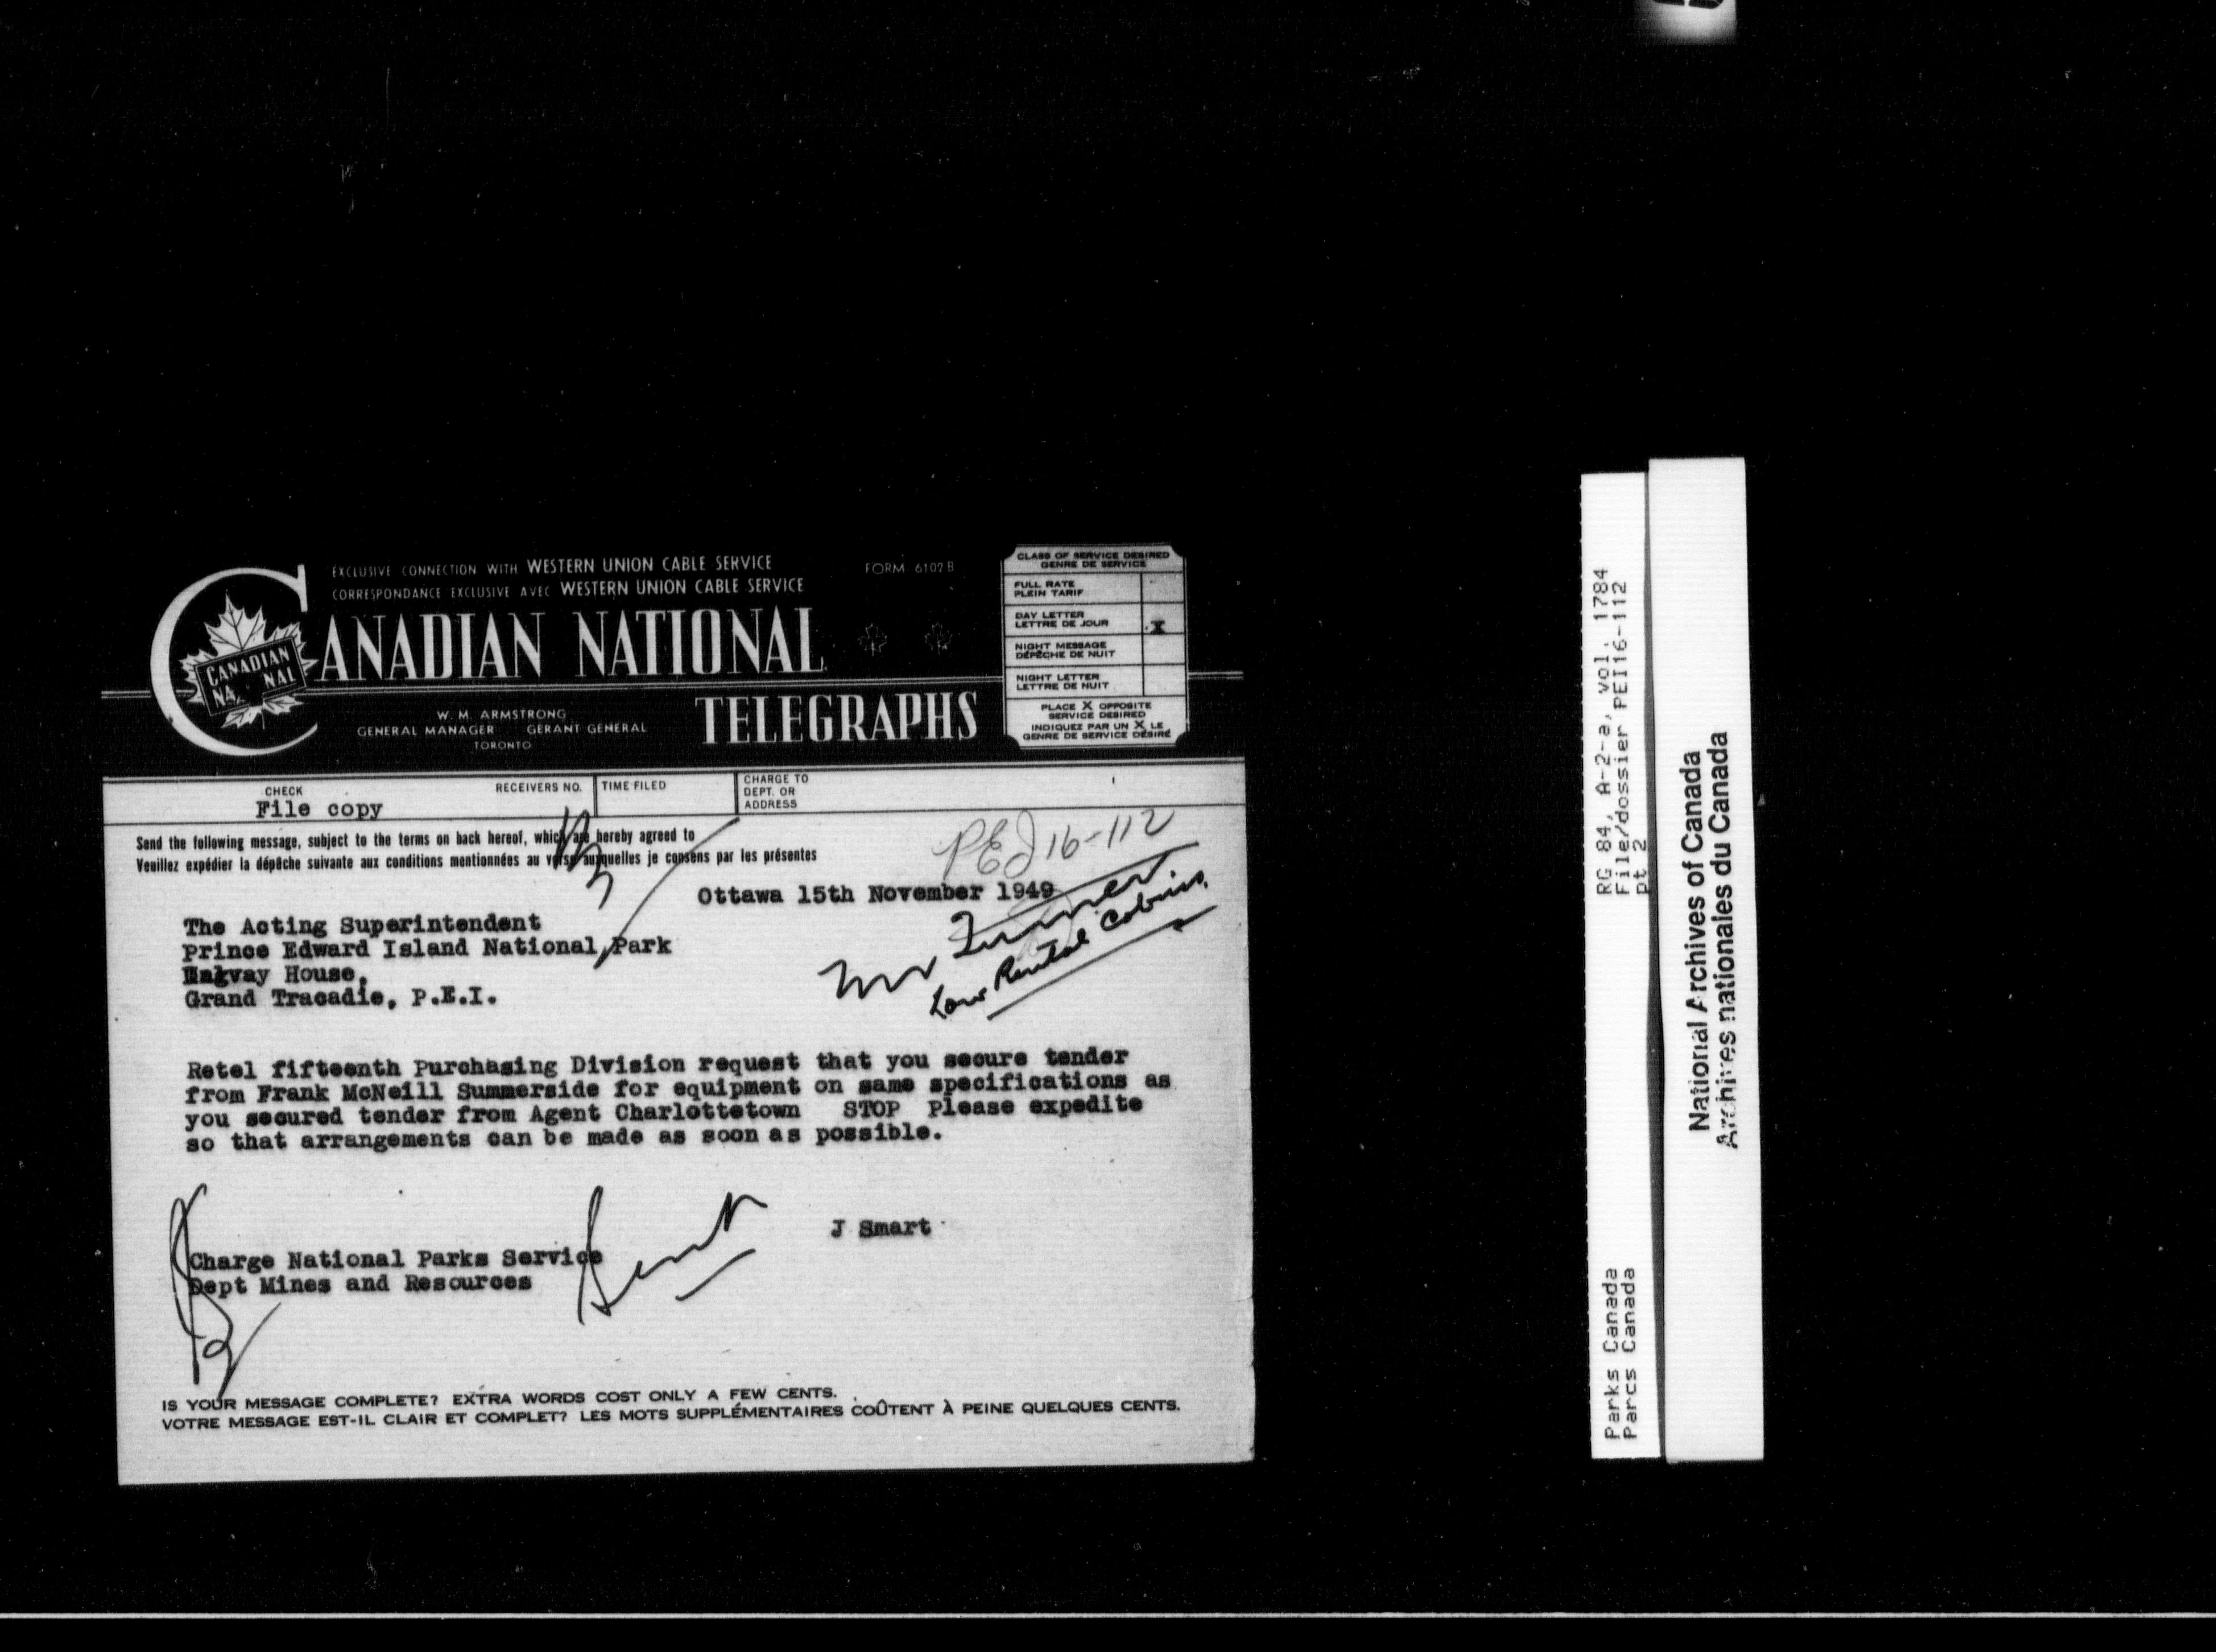 EXCLUSIVE CONNECTION WITH WESTERN UNION CABLE SERVICE
CORRESPONDANCE EXCLUSIVE AVEC WESTERN UNION CABLE SERVICE
FORM 6102 B
CANADIAN NATIONAL
TELEGRAPHS
CANADIAN
NATIONAL
W. M. ARMSTRONG
GENERAL MANAGER GERANT GENERAL
TORONTO
CLASS OF SERVICE DESIRED
GENRE DE SERVICE
FULL RATE
PLEIN TARIF
DAY LETTER
LETTRE DE JOUR X
NIGHT MESSAGE
DÉPÊCHE DE NUIT
NIGHT LETTER
LETTRE DE NUIT
PLACE X OPPOSITE
SERVICE DESIRED
INDIQUEZ PAR UN X LE
GENRE DE SERVICE DÉSIRÉ
CHECK
File copy
RECEIVERS NO.
TIME FILED
CHARGE TO
DEPT. OR
ADDRESS
Send the following message, subject to the terms on back hereof, which are hereby agreed to
Veuillez expédier la dépêche suivante aux conditions mentionnées au verso auxquelles je consens par les présentes
PEI 16-112
Ottawa 15th November 1949
Mr Turner
Low Rental Cabins
The Acting Superintendent
Prince Edward Island National Park
Dalvay House,
Grand Tracadie, P.E.I.
Retel fifteenth Purchasing Division request that you secure tender
from Frank McNeill Summerside for equipment on same specifications as
you secured tender from Agent Charlottetown STOP Please expedite
so that arrangements can be made as soon as possible.
J Smart
Smart
Charge National Parks Service
Dept Mines and Resources
IS YOUR MESSAGE COMPLETE? EXTRA WORDS COST ONLY A FEW CENTS.
VOTRE MESSAGE EST-IL CLAIR ET COMPLET? LES MOTS SUPPLÉMENTAIRES COÛTENT À PEINE QUELQUES CENTS.
RG 84, A-2-a, vol. 1784
File/dossier PEI16-112
pt 2
Parks Canada
Parcs Canada
National Archives of Canada
Archives nationales du Canada